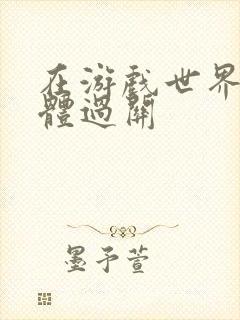 在游戲世界
體過關
墨予萱